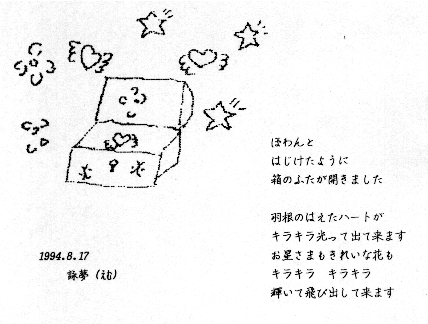 ほわんと
はじけたように
箱のふたが開きました
羽根のはえたハートが
キラキラ光って出て来ます
お星さまもきれいな花も
キラキラ　キラキラ
輝いて飛び出して来ます
1994.8.17
詠夢（えむ）